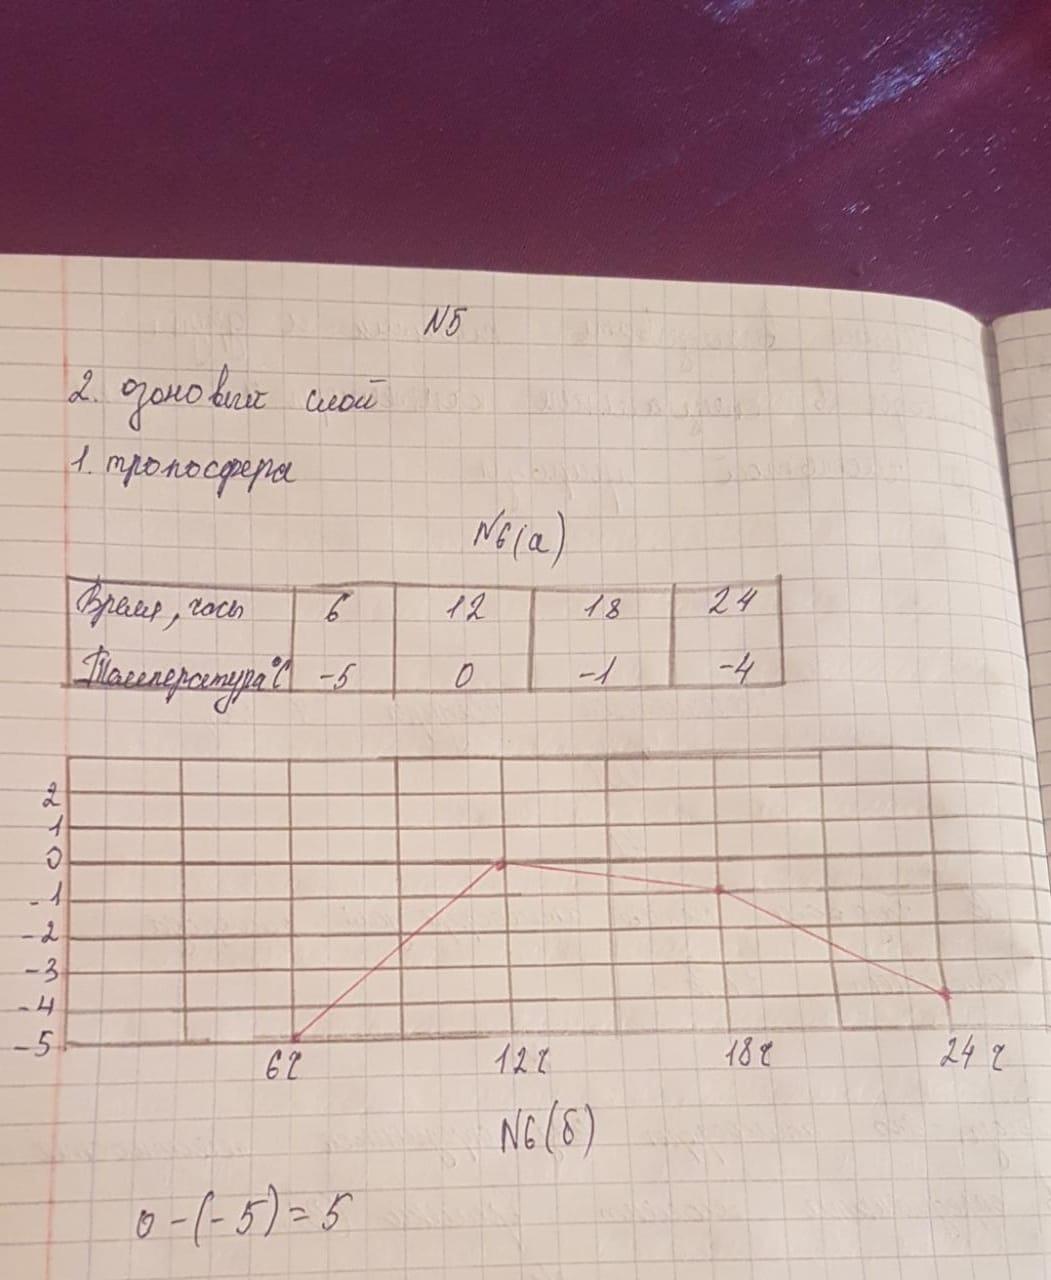 N5
2. озоновый слой
1. тропосфера
N6(а)
Время, часы 6 12 18 24
Температура °С -5 0 -1 -4
2
1
0
-1
-2
-3
-4
-5
6ч 12ч 18ч 24ч
N6(б)
0-(-5)=5